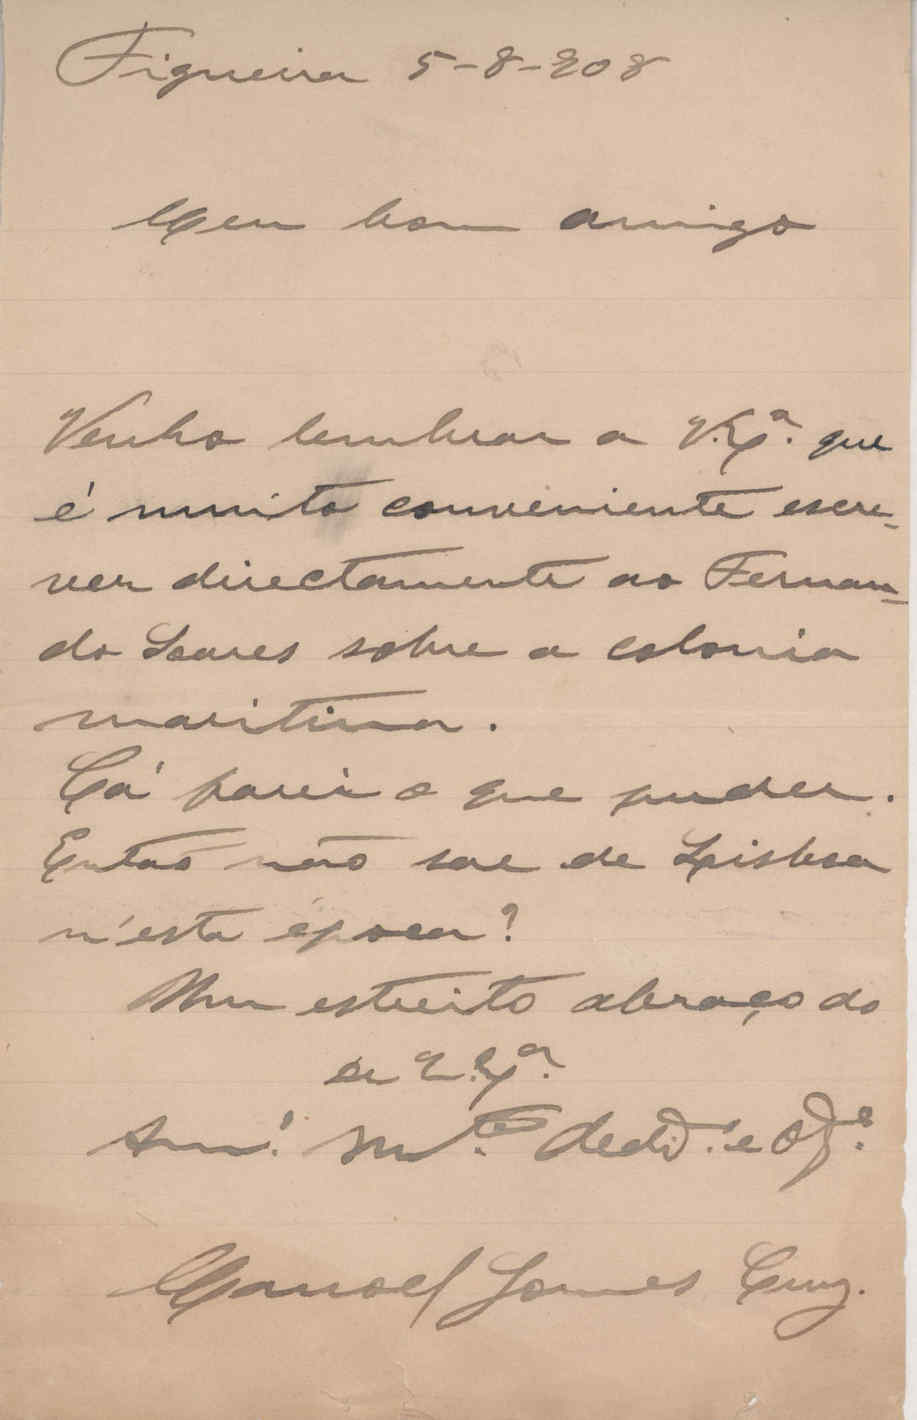 Figueira 5-8-908
Meu bom amigo
Venho lembrar a V. Exª. que
é muito conveniente escre-
ver directamente ao Fernan-
do Soares sobre a colonia
maritima.
Cá farei o que puder.
Então não sae de Lisboa
n'esta época?
Um estreito abraço do
de V. Exª.
Amº. Mtº. dedº. e obgº.
Manoel Gomes Cruz.